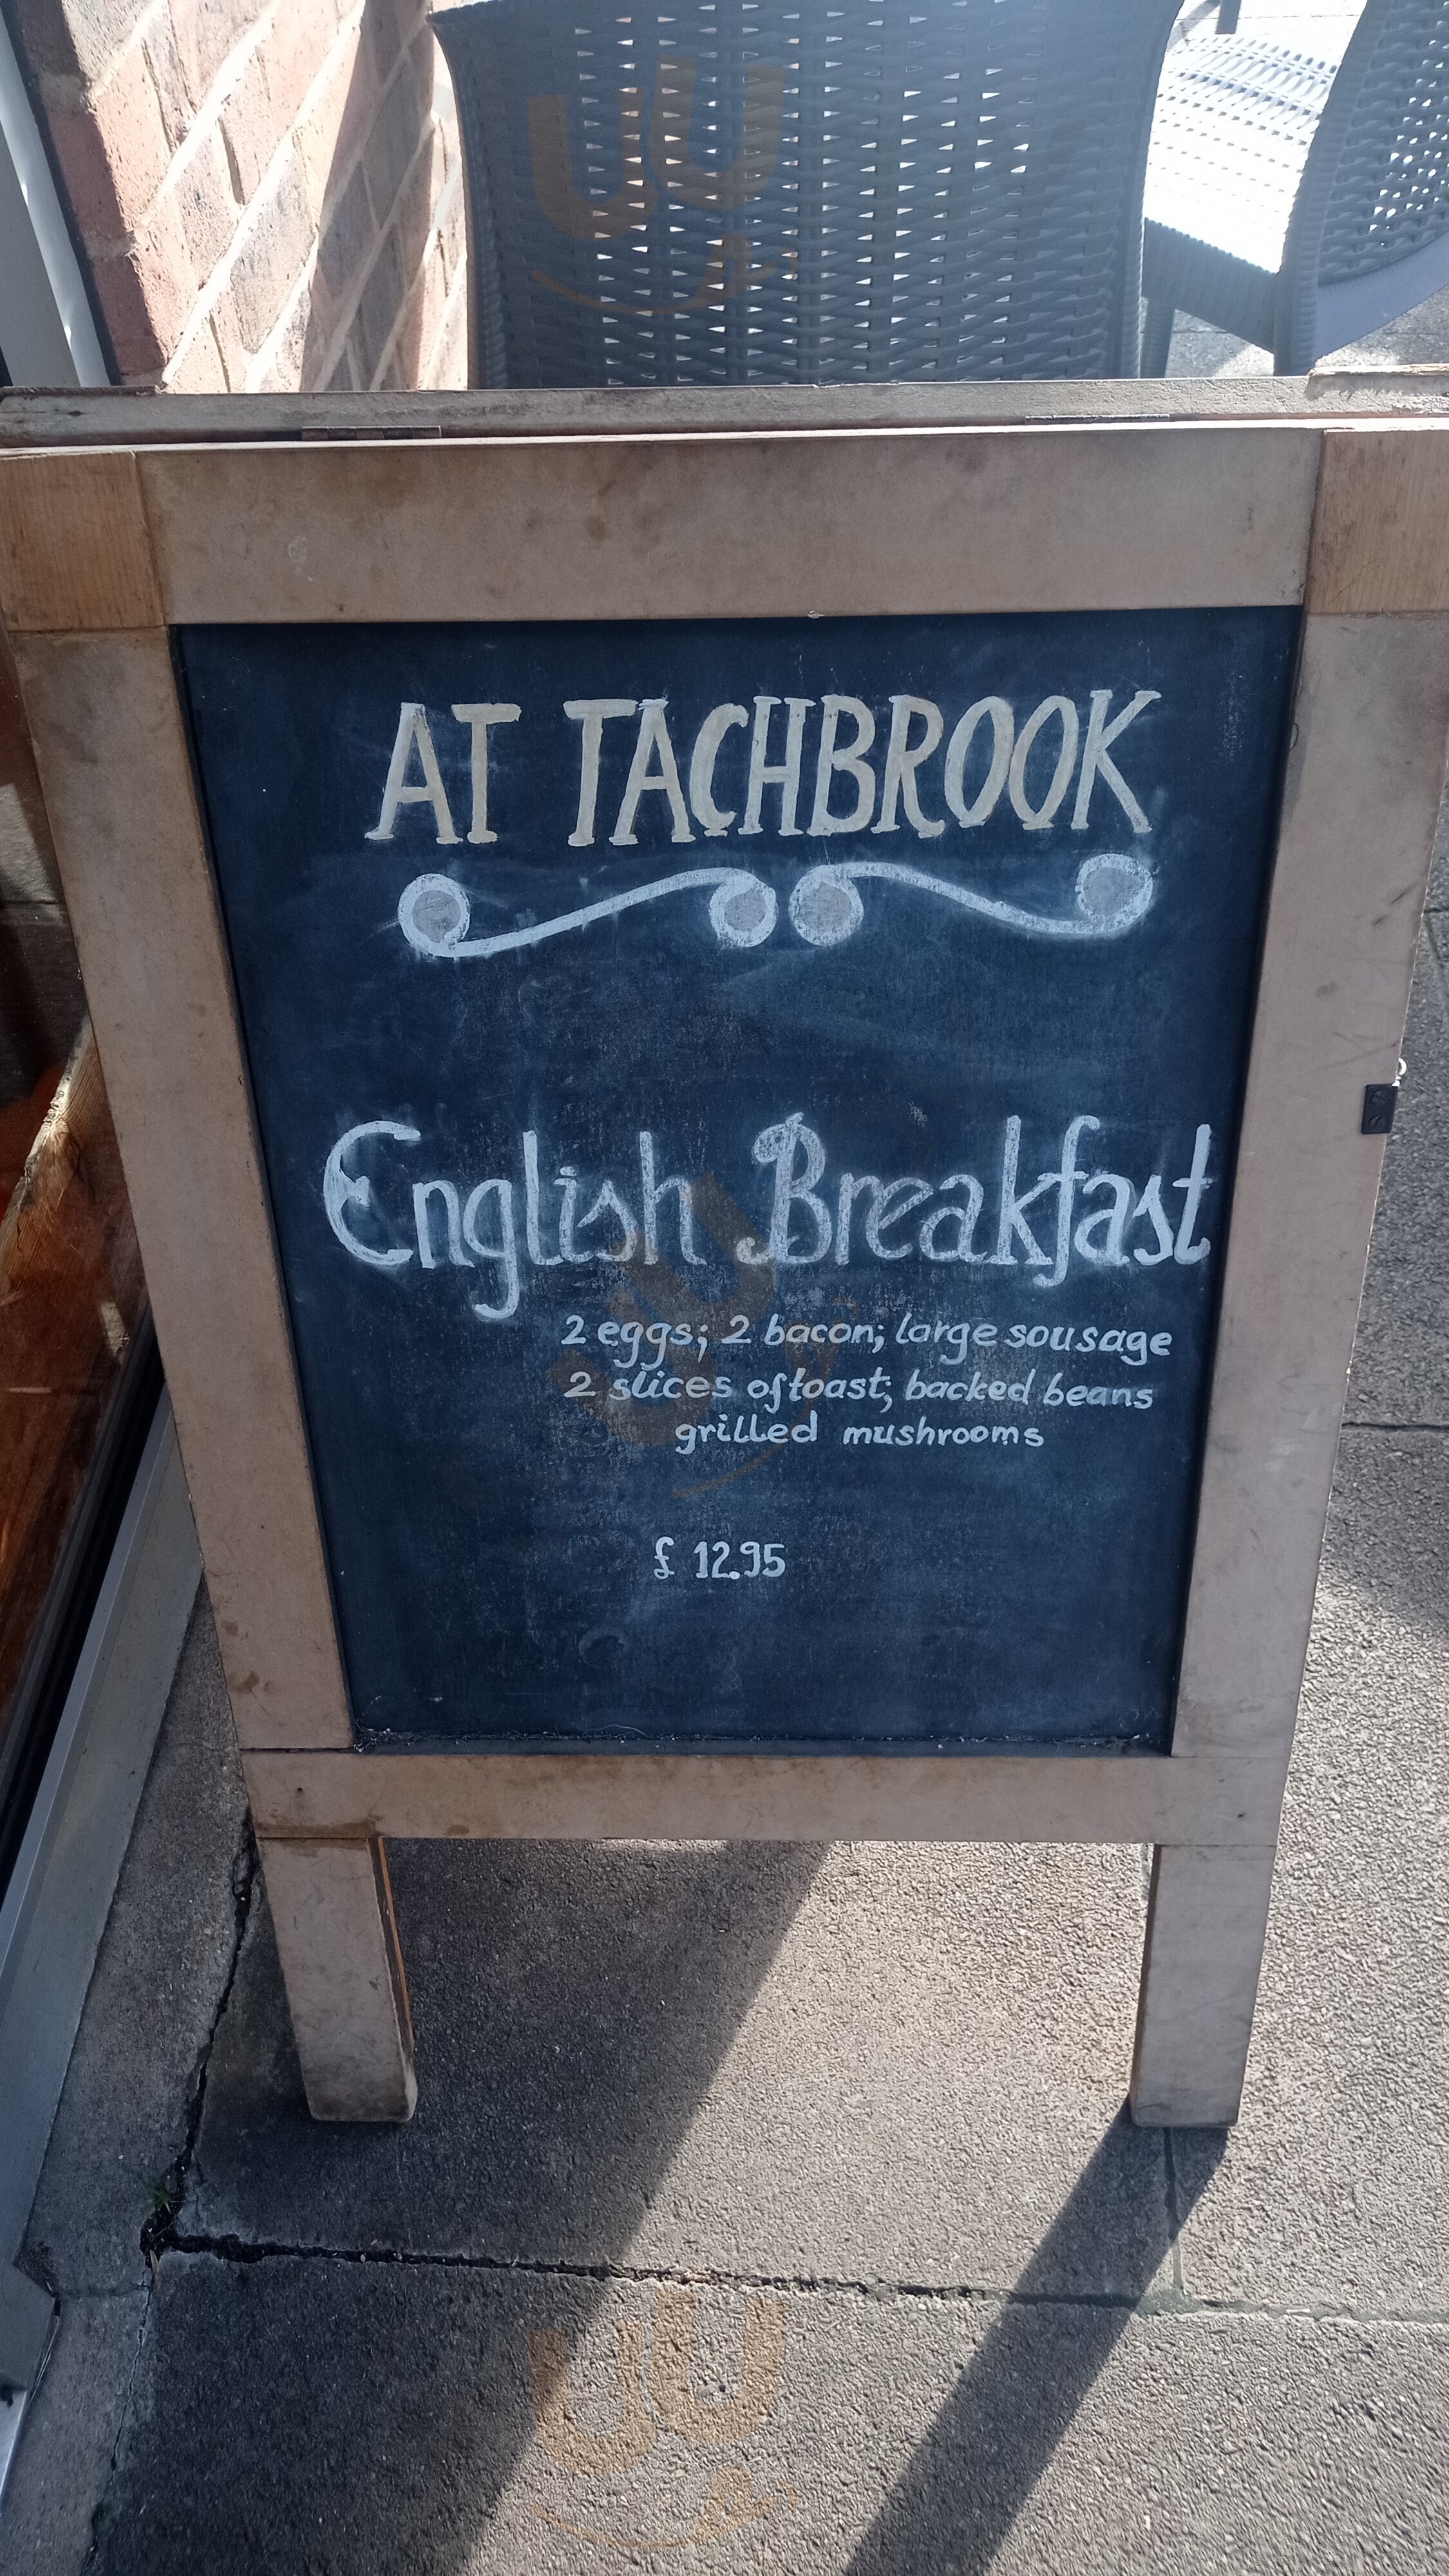 AT TACHBROOK
English Breakfast
2 eggs; 2 bacon; large sousage
2 slices of toast; backed beans
grilled mushrooms
£ 12.95